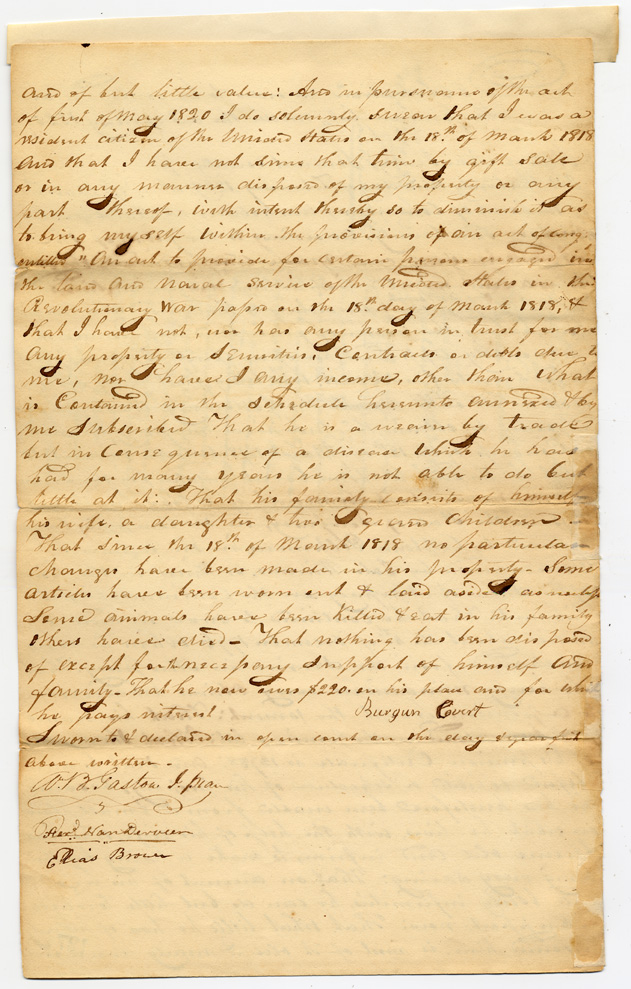 and of but little value: And in pursuance of the act
of first of May 1820 I do solemnly swear that I was a
resident citizen of the United States on the 18th of March 1818
and that I have not since that time by gift sale
or in any manner disposed of my property or any
part thereof, with intent thereby so to diminish it as
to bring myself within the provisions of an act of Cong.
entitled "An act to provide for certain persons engaged in
the land and naval service of the United States in the
Revolutionary War passed on the 18th day of March 1818, &
that I have not, nor has any person in trust for me
any property or securities, Contracts or debts due to
me, nor have I any income, other than what
is Contained in the schedule hereunto annexed & by
me Subscribed That he is a weaver by trade
but in Consequence of a disease which he has
had for many years he is not able to do but
little at it: That his family consists of himself
his wife, a daughter & two grand Children -
That since the 18th of March 1818 no particular
changes have been made in his property - Some
articles have been worn out & laid aside as useless
Some animals have been killed & eat in his family
others have died - That nothing has been disposed
of except for the necessary support of himself and
family - That he now owes $220. on his place and for which
he pays interest
Burgun Covert
Sworn to & declared in open court on the day & year first
above written -
W. B. Gaston J.
Vanderveer
Elias Brown